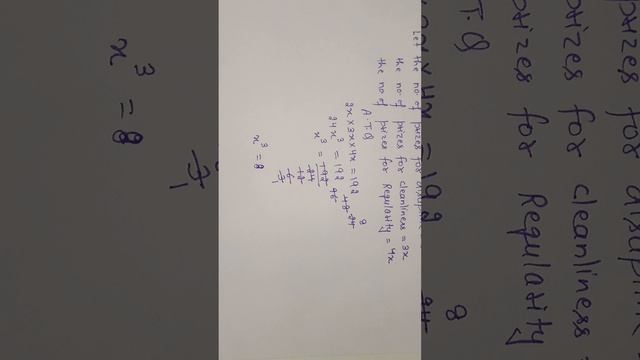 Let the no of prizes for
the no of prizes for cleanliness = 3x
the no of prizes for Regularity = 4x
A.T.Q
2x × 3x × 4x = 192
24x³ = 192
x³ = 192
24
x³ = 8